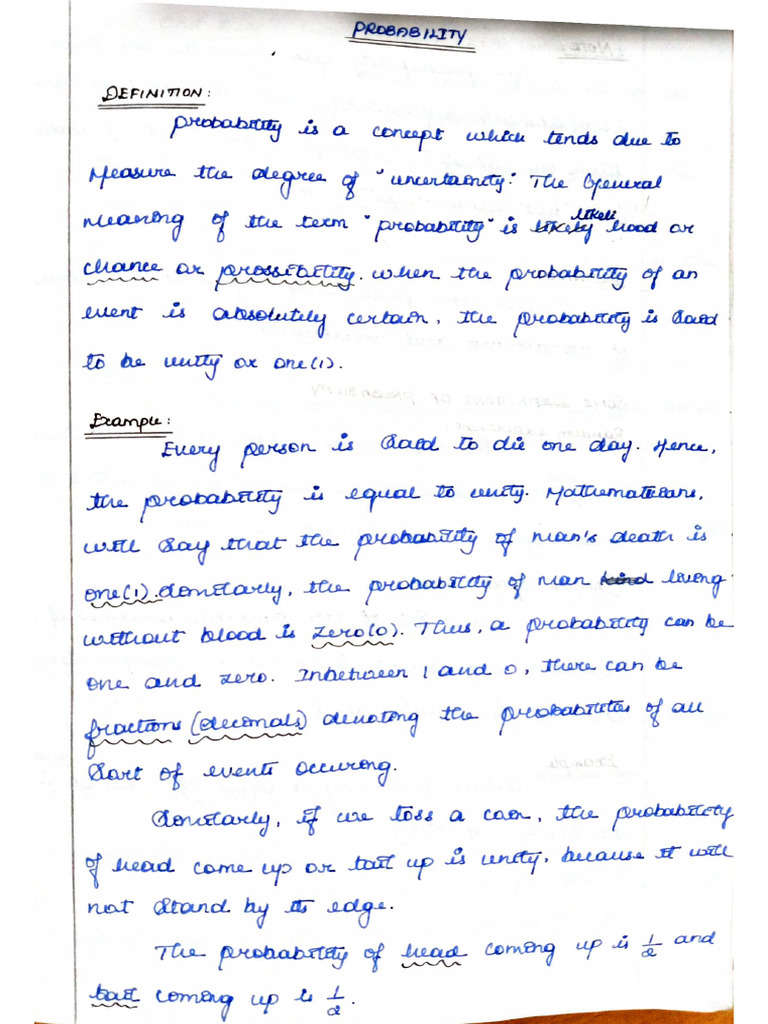 PROBABILITY
DEFINITION:
probability is a concept which tends due to
Measure the degree of "uncertainity". The General
likeli
meaning of the term "probability" is likely hood or
chance or prossibility. when the probability of an
event is absolutely certain, the probability is Said
to be unity or one(1).
Example:
Every person is Said to die one day. Hence,
the probability is equal to unity. Mathematicians,
will Say that the probability of man's death is
one(1). Similarly, the probability of man kind living
without blood is zero(0). Thus, a probability can be
one and zero. Inbetween 1 and 0, there can be
fractions (decimals) denoting the probabilities of all
Sort of events occuring.
Similarly, if we toss a coin, the probability
of head come up or tail up is unity, because it will
not Stand by its edge.
The probability of head coming up is 1/2 and
tail coming up is 1/2.